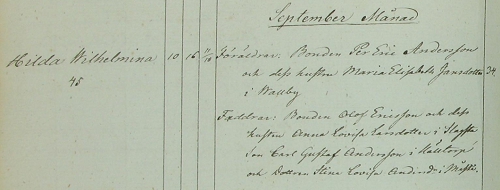 September Månad
Hilda Wilhelmina 10 16 Föräldrar: Bonden Per Eric Andersson
och dess hustru Maria Elisabeth Jansdotter 34
45 i Wallby
Faddrar: Bonden Olof Ericsson och dess
hustru Anna Lovisa Larsdotter i
Son Carl Gustaf Andersson i
och Dottren Stina Lovisa i